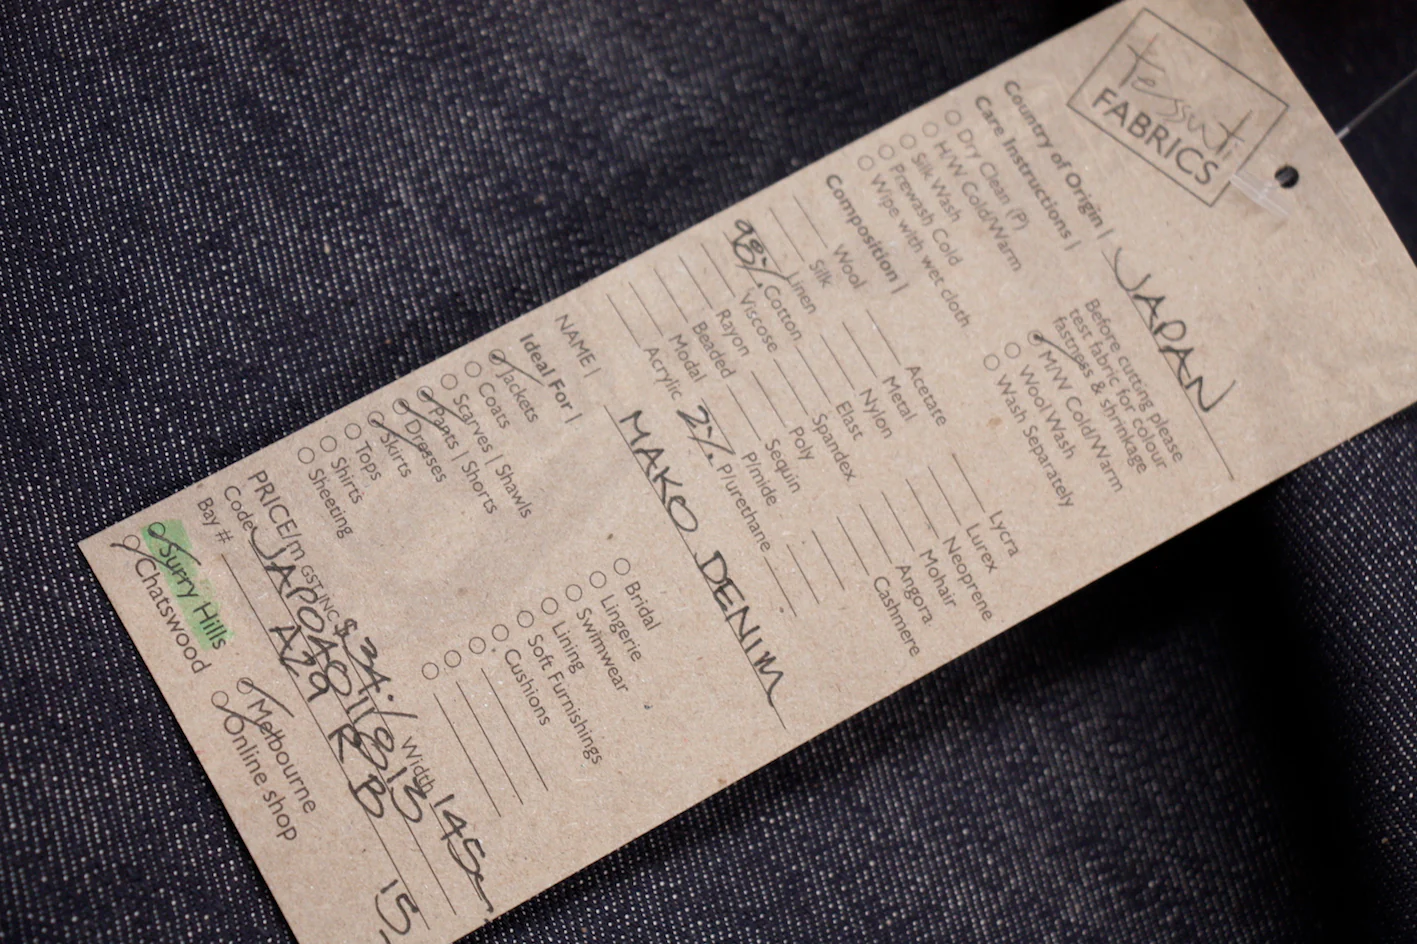 tessuti
FABRICS
Country of Origin | JAPAN
Care Instructions |
Before cutting please
test fabric for colour
fastness & shrinkage
Dry Clean (P)
H/W Cold/Warm
Silk Wash
Prewash Cold
Wipe with wet cloth
M/W Cold/Warm
Wool Wash
Wash Separately
Composition |
Wool
Silk
Linen
98% Cotton
Viscose
Rayon
Beaded
Modal
Acrylic
Acetate
Metal
Nylon
Elast
Spandex
Poly
Sequin
P/mide
2% P/urethane
Lycra
Lurex
Neoprene
Mohair
Angora
Cashmere
NAME | MAKO DENIM
Ideal For |
Jackets
Coats
Scarves | Shawls
Pants | Shorts
Dresses
Skirts
Tops
Shirts
Sheeting
Bridal
Lingerie
Swimwear
Lining
Soft Furnishings
Cushions
PRICE/m GST INC $34./ Width 145
Code
Bay # A29 R B 15
Surry Hills
Chatswood
Melbourne
Online shop